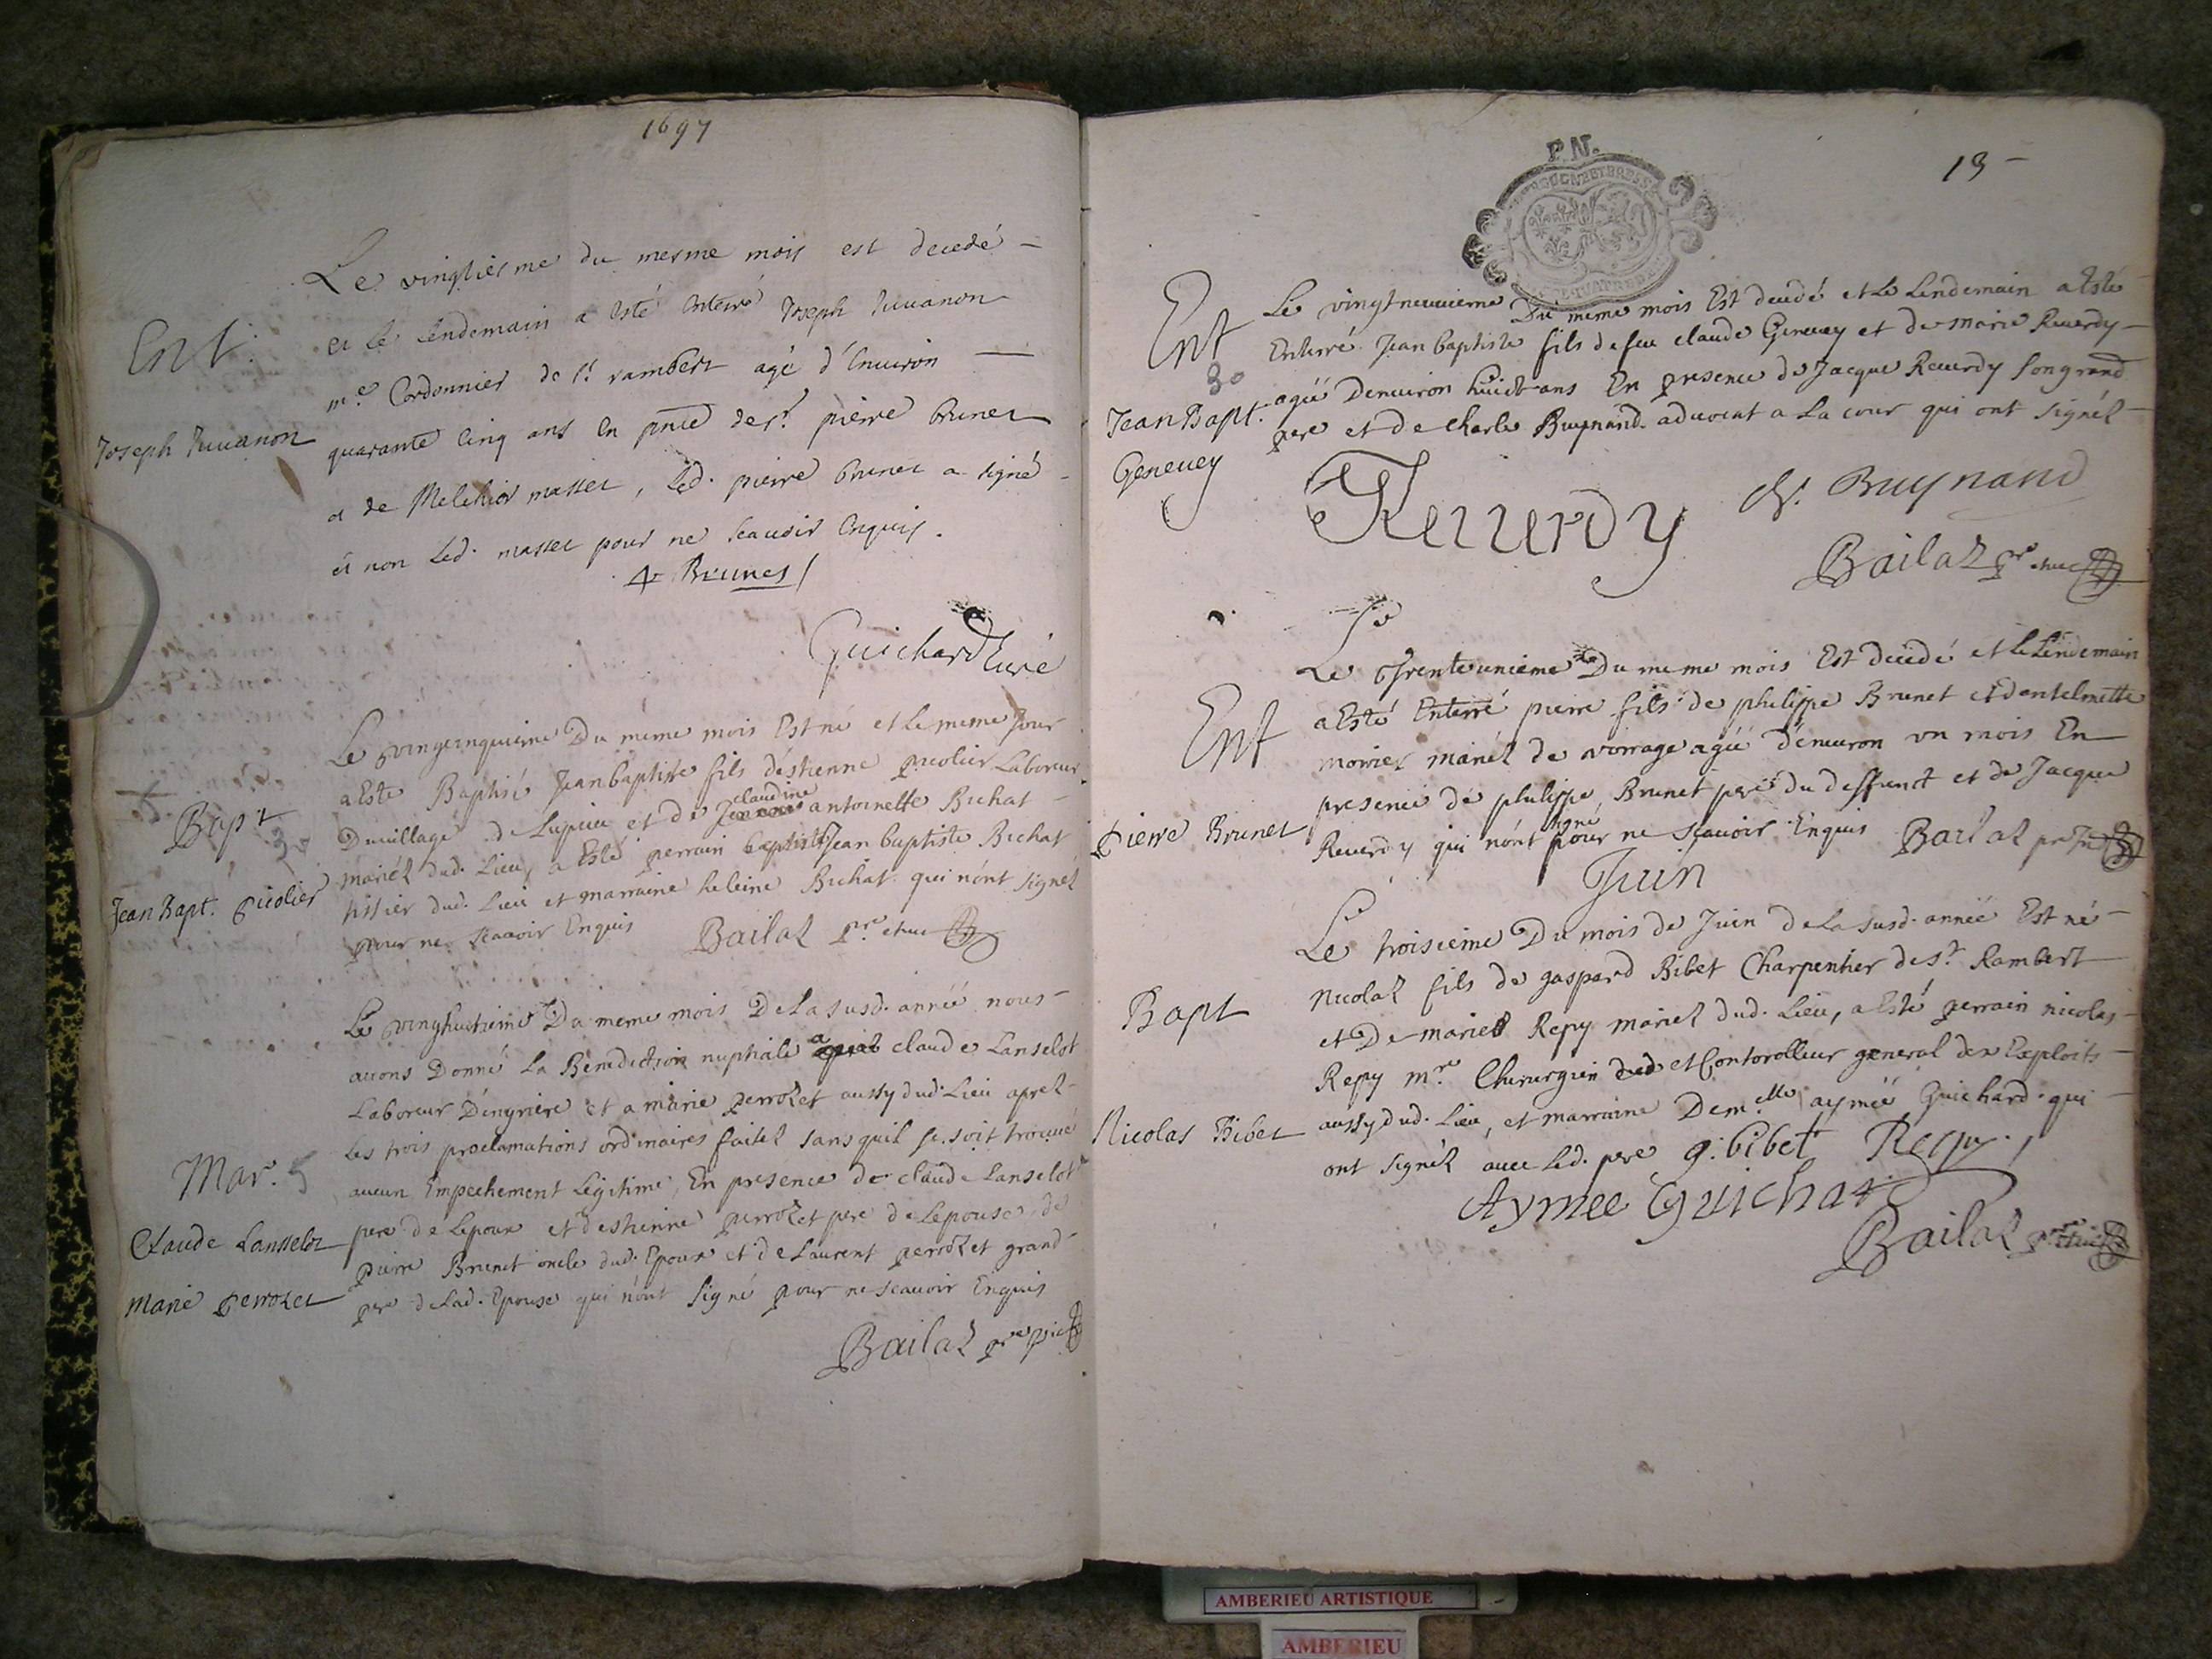 1697
Le vingtiesme du mesme mois est decedé -
et le lendemain a esté enterré Joseph Juuanon
me Cordonnier de st rambert agé d'Enuiron -
quarante cinq ans en pnce de st pierre brunet
et de Melchior masset, led. pierre brunet a signé -
et non Led. masset pour ne scauoir Enquis.
Ent.
Joseph Juuanon
Brunet
Guichard Curé
Le vingtcinquieme Du meme mois Est né et le meme Jour
a Esté Baptisé Jean baptiste fils d'éstienne picolier Laboreur
Du uillage de Lupieu et de claudine antoinette Bichat -
mariéz dud. Lieu, a Esté perrain Jean baptiste Bichat
tissier dud. Lieu et marraine heleine Bichat qui n'ont signéz
pour ne scauoir Enquis Bailaz pr. et uic
Bapt
30
Jean Bapt. Picolier
Le vinghuitieme Du meme mois De La susd. année nous -
auons Donné La Benediction nuptiale a claude Lanselot
Laboreur D'engriere et a marie perrozet aussy dud. Lieu aprez -
les trois proclamations ordinaires faitez sans quil se soit trouué
aucun Empechement Legitime, En presence de claude Lanselot
pere de Lepoux et d'estienne perrozet pere de Lepouse, de
pierre Brunet oncle dud. Epoux et de Laurent perrozet grand -
pere de Lad. Epouse qui n'ont signé pour ne scauoir Enquis
Mar. 5
Claude Lansselot
Marie Perrozet
Bailaz pre
P.N.
13 -
Le vingt neuuieme Du meme mois Est decedé et Le Lendemain a Esté
Enterré Jean baptiste fils de feu claude Geneuey et de marie Reuerdy -
agéé Denuiron huict ans En presence de Jacque Reuerdy son grand
pere et de charle Buynand aduocat a La cour qui ont signéz -
Ent
30
Jean Bapt.
Geneuey
Reuerdy
ch. Buynand
Bailaz pr et uic
Le trente unieme Du meme mois Est decedé et le Lendemain
a Esté Enterré pierre fils de philippe Brunet et dantelmette
monier mariéz de uorrage agéé d'enuiron un mois En
presence de philippe Brunet pere du deffunct et de Jacque
Reuerdy qui n'ont signé pour ne scauoir Enquis Bailaz
Ent
Pierre Brunet
Juin
Le troisieme Du mois de Juin de La susd. année Est né -
nicolaz fils de gaspard Bibet Charpentier de st Rambert
et De marie Repy mariez dud. Lieu, a Esté perrain nicolas -
Repy mre Chirurgien et Contorolleur general des Exploits -
aussy dud. Lieu, et marraine Demelle aymée Guichard qui -
ont signéz auec Led. pere g. bibet Repy
Bapt
Nicolas Bibet
Aymee Guichard
Bailaz pr et uic
AMBERIEU ARTISTIQUE
AMBERIEU